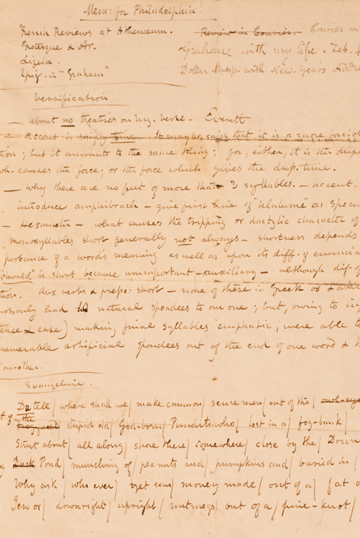 Mem: for Philadelphia
French Reviews at Athenæum. Review in Courier. Courier
Grotesque & Ar. Graham's with my life. Feb. 4
Ligeia.
Epig. in "Graham" Dollar Newsp. with New Year's Address
Versification
— about no treatises on Eng. verse. Everett
— accent is simply time. It maybe said that it is a more forcible
tion; but it amounts to the same thing; for, either, it is the
wh. causes the force; or the force which gives the time.
— why there are no feet of more than 3 syllables. — accent.
introduce amphibrach — give first line of "Ulalume" as
— Hexameter — what causes the tripping or dactylic character of
monosyllables short generally not always — shortness depends
portance of a word's meaning as well as upon its diff. of
is short because unimportant — auxiliary — although dif-
tion. Aux verbs & prepos: short — none of these in Greek or
only had 10 natural spondees to our one; but, owing to
tense & case) making final syllables emphatic, were able
innumerable artificial spondees out of the end of one word &
another.
Evangeline.
Do tell / when shall we / make common / sense men / out of the /
stupid old / God-born / Pundits who / lost in a / fog-bank /
Strut about / all along / shore there / somewhere / close by the / Down
Pond / munching of / pea nuts and / pumpkins and / buried in
Why ask / who ever / yet saw / money made / out of a / fat
Jew or / downright / upright / nutmegs / out of a / pine-knot /